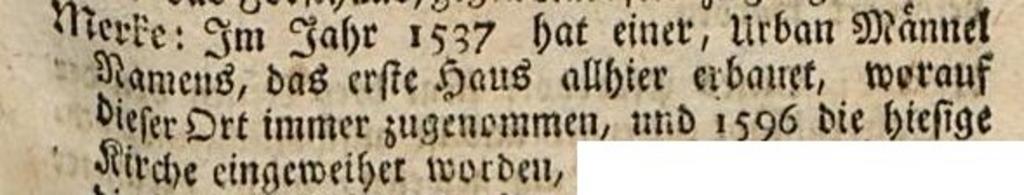 Merke: Im Jahr 1537 hat einer, Urban Männel
Namens, das erste Haus allhier erbauet, worauf
dieser Ort immer zugenommen, und 1596 die hiesige
Kirche eingeweihet worden,